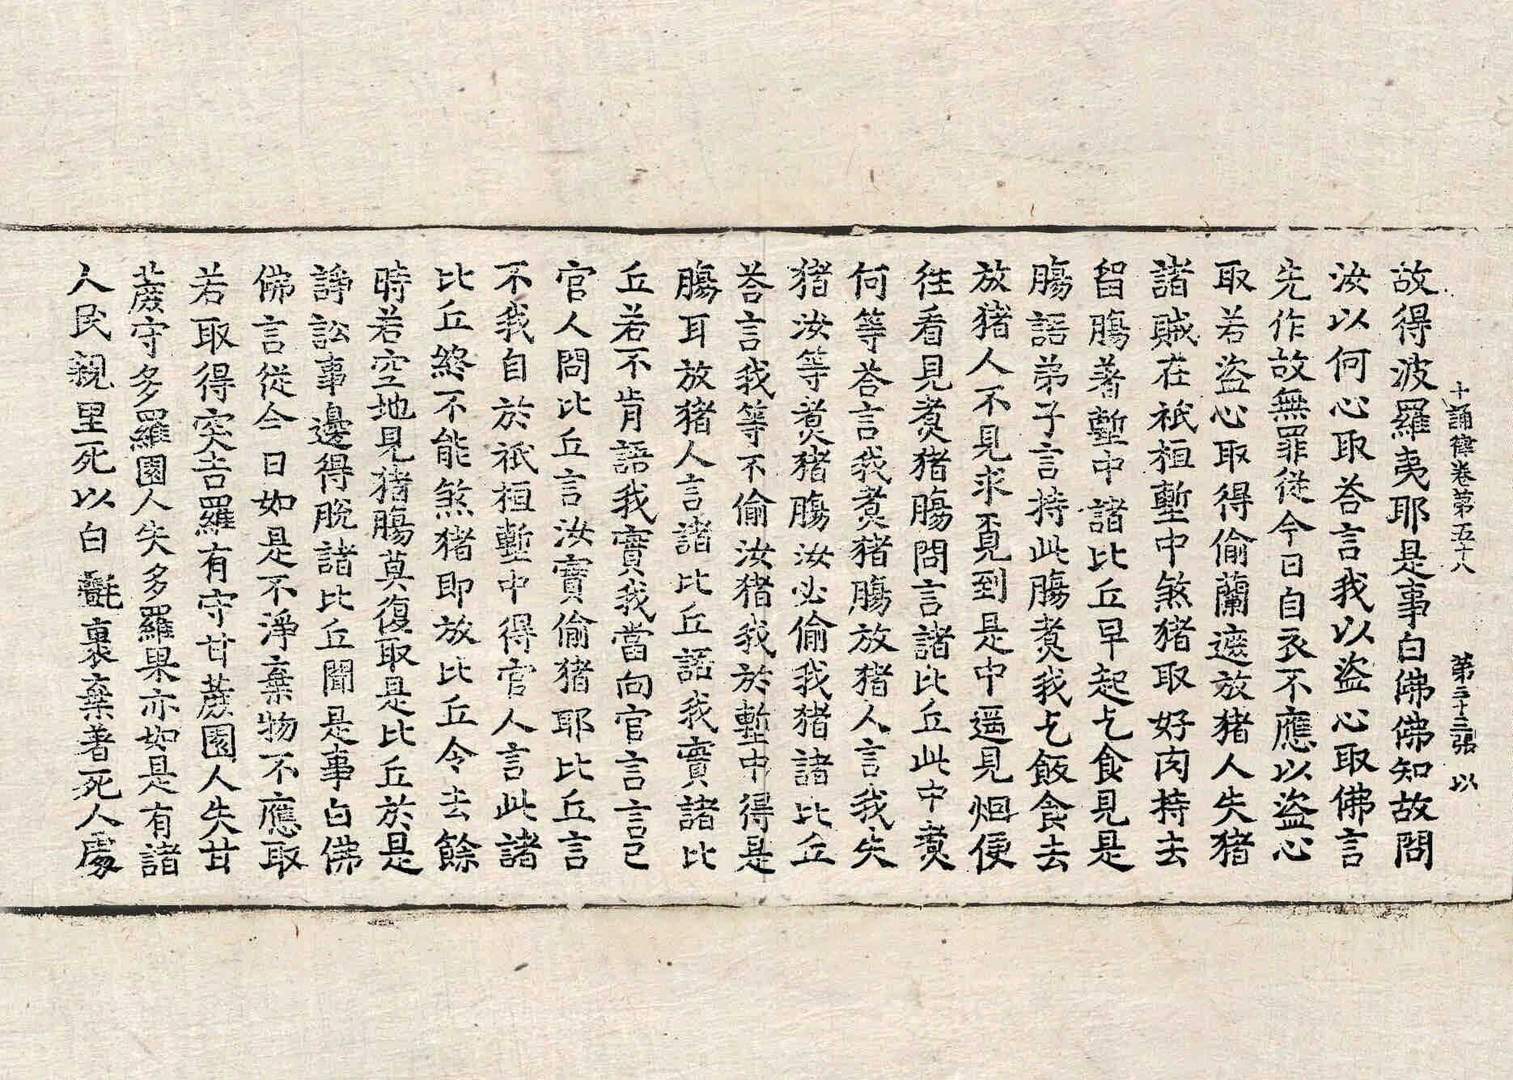 十誦律卷第五十八 第三十三張 以
故得波羅夷耶是事白佛佛知故問
汝以何心取荅言我以盜心取佛言
先作故無罪從今日自衣不應以盜心
取若盜心取得偷蘭遮放猪人失猪
諸賊在祇桓塹中煞猪取好肉持去
留膓著塹中諸比丘早起乞食見是
膓語弟子言持此膓煑我乞飯食去
放猪人不見求覓到是中遥見烟便
往看見煑猪膓問言諸比丘此中煑
何等荅言我煑猪膓放猪人言我失
猪汝等煑猪膓汝必偷我猪諸比丘
荅言我等不偷汝猪我於塹中得是
膓耳放猪人言諸比丘語我實諸比
丘若不肯語我實我當向官言言已
官人問比丘言汝實偷猪耶比丘言
不我自於祇桓塹中得官人言此諸
比丘終不能煞猪即放比丘令去餘
時若空地見猪膓莫復取是比丘於是
諍訟事邊得脫諸比丘聞是事白佛
佛言從今日如是不淨棄物不應取
若取得突吉羅有守甘蔗園人失甘
蔗守多羅園人失多羅果亦如是有諸
人民親里死以白㲲裹棄著死人處